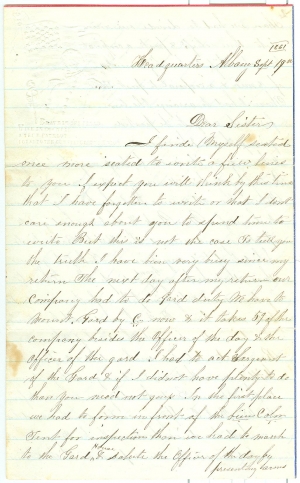 1861
Headquarters Albany Sept 19th
Dear Sister
I finde Myself seated
once more seated to write a few lines
to you I expect you will think by this time
that I have forgotten to write or that I dont
care enough about you to spend time to
write But this is not the case To tell you
the truth I have bin very busy since my
return The next day after my return our
Company had to do Gard duty We have to
Mount Gard by Co now & it takes 59 of the
company besides the Officer of the day & the
officer of the gard I had to act Sergeant
of the Gard & if I did not have plenty to do
than you need not guess In the first place
we had to form in front of the Color
Tent for inspection then we had to march
to the Gard House & salute the Officer of the day by
presenting arms